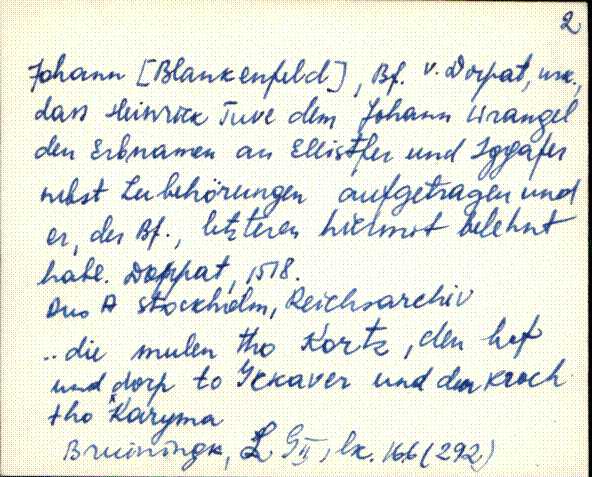 2
Johann [Blankenfeld], Bf. v. Dorpat, urk.,
dass Heinrick Tuve dem Johann Wrangel
den Erbnamen an Ellistfer und Iggafer
nebst Zubehörungen aufgetragen und
er, der Bf., letzteren hiermit belehnt
habe. Dorpat, 1518.
Aus A Stockholm, Reichsarchiv
.. die mulen tho Kortz, den hof
und dorp to Ickaver und den kroch
tho Karyma
Bruiningk, L G II, lk. 166 (292)